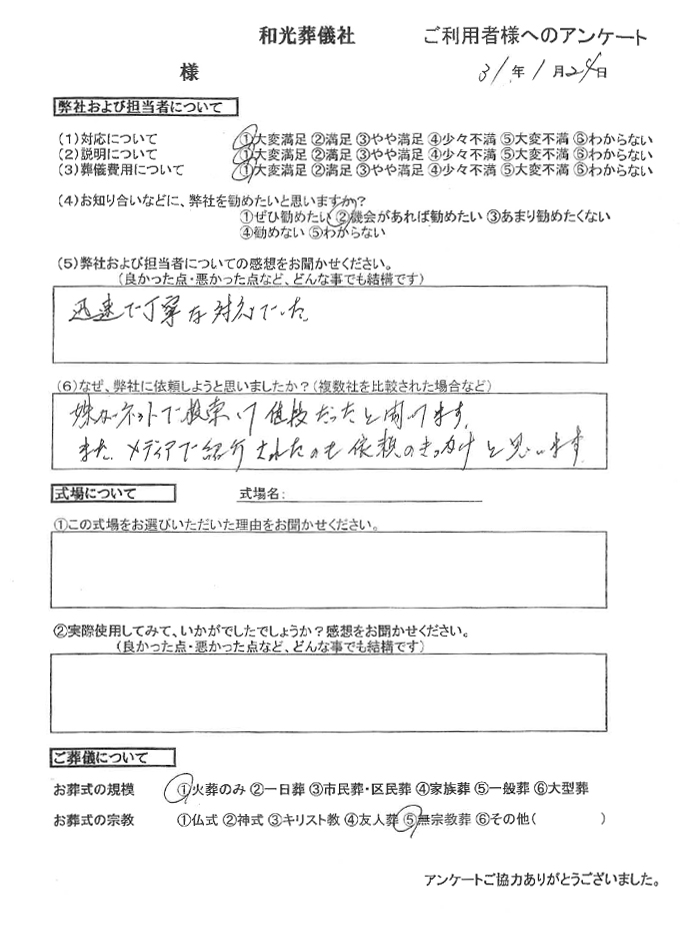 和光葬儀社 ご利用者様へのアンケート
様 31年1月24日
弊社および担当者について
(1)対応について ①大変満足 ②満足 ③やや満足 ④少々不満 ⑤大変不満 ⑥わからない
(2)説明について ①大変満足 ②満足 ③やや満足 ④少々不満 ⑤大変不満 ⑥わからない
(3)葬儀費用について ①大変満足 ②満足 ③やや満足 ④少々不満 ⑤大変不満 ⑥わからない
(4)お知り合いなどに、弊社を勧めたいと思いますか?
①ぜひ勧めたい ②機会があれば勧めたい ③あまり勧めたくない
④勧めない ⑤わからない
(5)弊社および担当者についての感想をお聞かせください。
(良かった点・悪かった点など、どんな事でも結構です)
迅速で丁寧な対応でした。
(6)なぜ、弊社に依頼しようと思いましたか?(複数社を比較された場合など)
がネットで検索して値段だったと聞いてます。
また、メディアで紹介されたのも依頼のきっかけと思います
式場について 式場名:
①この式場をお選びいただいた理由をお聞かせください。
②実際使用してみて、いかがでしたでしょうか?感想をお聞かせください。
(良かった点・悪かった点など、どんな事でも結構です)
ご葬儀について
お葬式の規模 ①火葬のみ ②一日葬 ③市民葬・区民葬 ④家族葬 ⑤一般葬 ⑥大型葬
お葬式の宗教 ①仏式 ②神式 ③キリスト教 ④友人葬 ⑤無宗教葬 ⑥その他( )
アンケートご協力ありがとうございました。